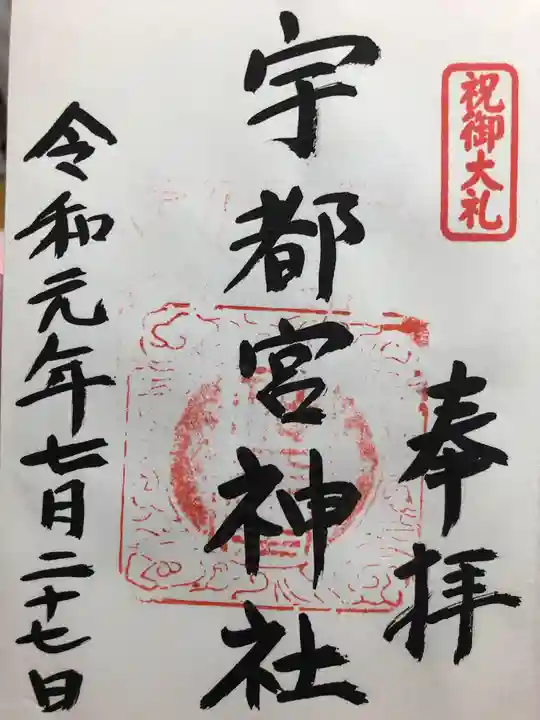 祝御大礼
奉拝
宇都宮神社
令和元年七月二十七日